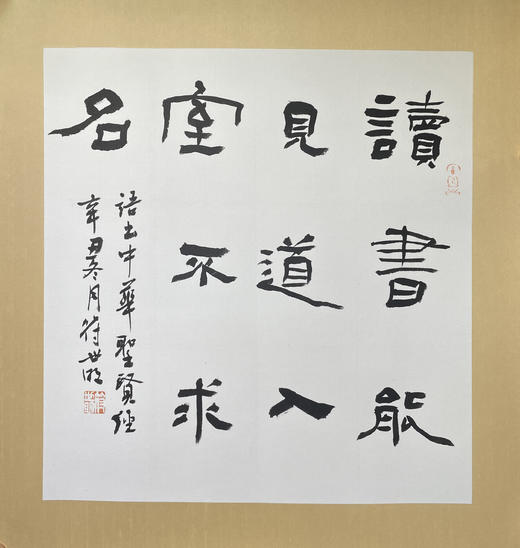 讀書能
見道入
室不求
名
語出中華聖賢經
辛丑冬月